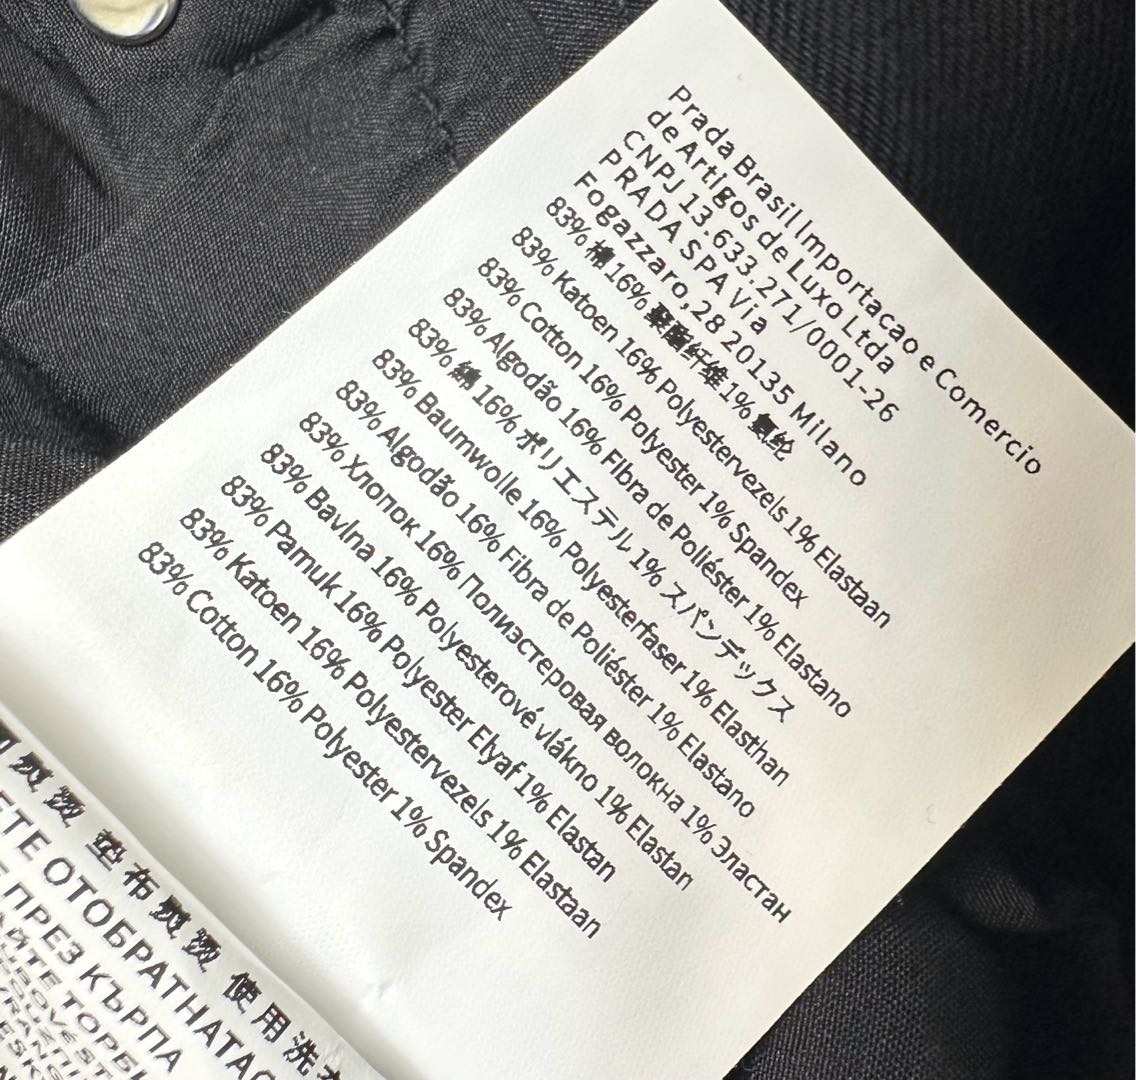 Prada Brasil Importacao e Comercio
de Artigos de Luxo Ltda
CNPJ 13.633.271/0001-26
PRADA SPA Via
Fogazzaro,28 20135 Milano
83% 棉 16% 聚酯纤维 1% 氨纶
83% Katoen 16% Polyestervezels 1% Elastaan
83% Cotton 16% Polyester 1% Spandex
83% Algodão 16% Fibra de Poliéster 1% Elastano
83% 綿 16% ポリエステル 1% スパンデックス
83% Baumwolle 16% Polyesterfaser 1% Elasthan
83% Algodão 16% Fibra de Poliéster 1% Elastano
83% Хлопок 16% Полиэстеровая волокна 1% Эластан
83% Bavlna 16% Polyesterové vlákno 1% Elastan
83% Pamuk 16% Polyester Elyaf 1% Elastan
83% Katoen 16% Polyestervezels 1% Elastaan
83% Cotton 16% Polyester 1% Spandex
熨烫 垫布熨烫 使用洗
ЕТЕ ОТОБРАТНАТАС
ПРЕЗ КЪРПА